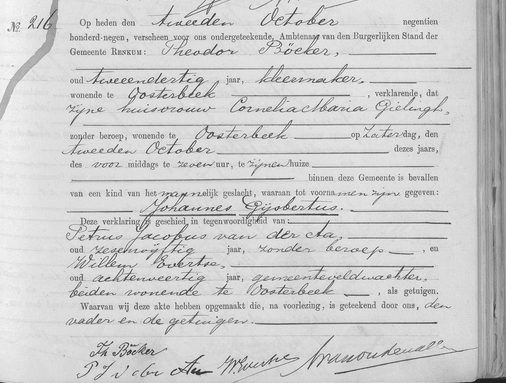 Nº. 216
Op heden den tweeden October negentien
honderd-negen, verscheen voor ons ondergeteekende, Ambtenaar van den Burgerlijken Stand der
Gemeente RENKUM: Theodor Böcker,
oud tweeendertig jaar, kleermaker,
wonende te Oosterbeek, verklarende, dat
zijne huisvrouw Cornelia Maria Gielingh,
zonder beroep, wonende te Oosterbeek op Zaterdag, den
tweeden October dezes jaars,
des voor middags te zeven uur, te zijnen huize
binnen deze Gemeente is bevallen
van een kind van het mannelijk geslacht, waaraan tot voornamen zijn gegeven:
Johannes Gijsbertus.
Deze verklaring is geschied in tegenwoordigheid van:
Petrus Jacobus van der Aa,
oud zesenvijftig jaar, zonder beroep, en
Willem Evertse,
oud achtenveertig jaar, gemeenteveldwachter,
beiden wonende te Oosterbeek, als getuigen.
Waarvan wij deze akte hebben opgemaakt die, na voorlezing, is geteekend door ons, den
vader en de getuigen.
Th Böcker
P J v der Aa WEvertse